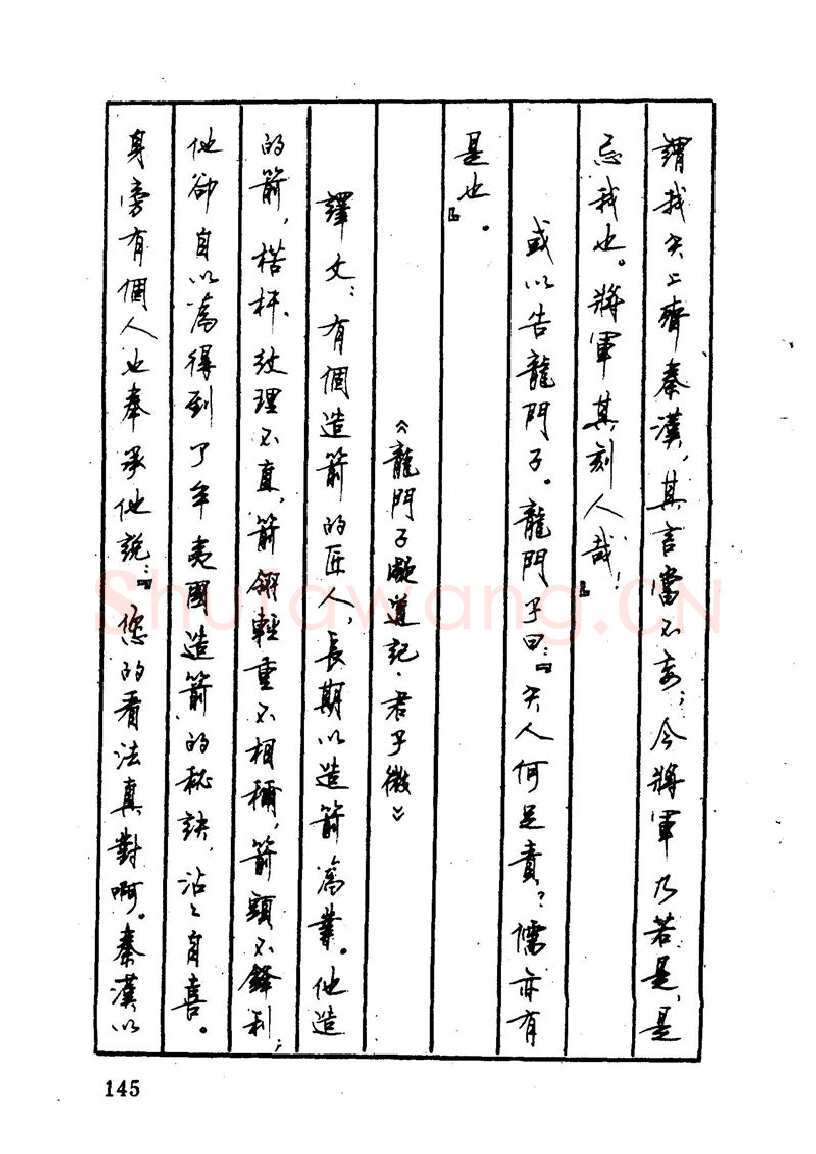 謂我矢上齊秦漢，其言當不妄；今將軍乃若是，是
忌我也。將軍其刻人哉！』
或以告龍門子。龍門子曰：『矢人何足責？儒亦有
是也。』
《龍門子凝道記·君子微》
譯文：有個造箭的匠人，長期以造箭為業。他造
的箭，楛杆、紋理不直，箭翎輕重不相稱，箭頭不鋒利；
他卻自以為得到了牟夷國造箭的秘訣，沾沾自喜。
身旁有個人也奉承他說：『您的看法真對啊。秦漢以
145
Shufawang.CN